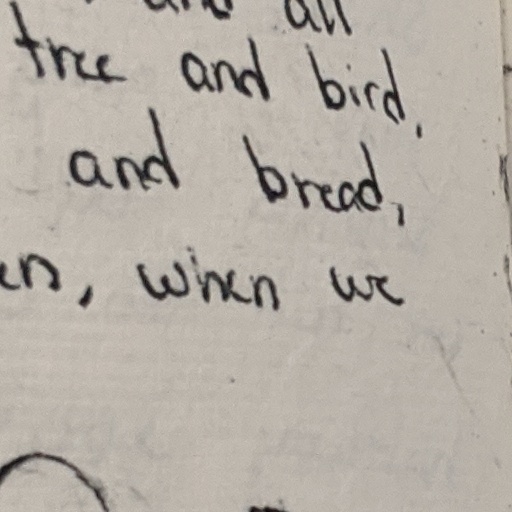 and all
tree and bird,
and bread,
en, when we